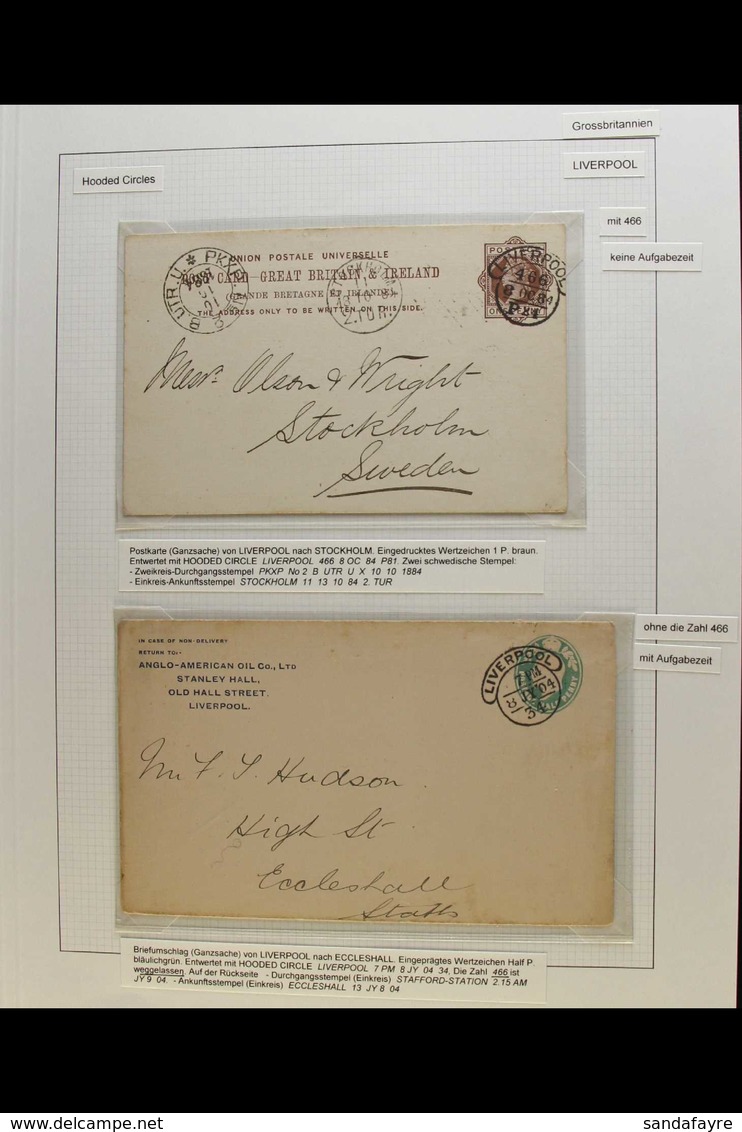 Grossbritannien
Hooded Circles
LIVERPOOL
mit 466
keine Aufgabezeit
UNION POSTALE UNIVERSELLE
POST CARD-GREAT BRITAIN & IRELAND
(GRANDE BRETAGNE ET IRLANDE)
THE ADDRESS ONLY TO BE WRITTEN ON THIS SIDE.
PKXP
B UTR. U.
2.TUR.
LIVERPOOL
466
8 OC 84
P81
ONE PENNY
Messrs Olson & Wright
Stockholm
Sweden
Postkarte (Ganzsache) von LIVERPOOL nach STOCKHOLM. Eingedrucktes Wertzeichen 1 P. braun.
Entwertet mit HOODED CIRCLE LIVERPOOL 466 8 OC 84 P81. Zwei schwedische Stempel:
- Zweikreis-Durchgangsstempel PKXP No 2 B UTR U X 10 10 1884
- Einkreis-Ankunftsstempel STOCKHOLM 11 13 10 84 2. TUR
ohne die Zahl 466
mit Aufgabezeit
IN CASE OF NON-DELIVERY
RETURN TO:-
ANGLO-AMERICAN OIL CO., LTD
STANLEY HALL,
OLD HALL STREET.
LIVERPOOL.
LIVERPOOL
7 PM
8 JY 04
34
Mr F. S. Hudson
High St
Eccleshall
Staffs
Briefumschlag (Ganzsache) von LIVERPOOL nach ECCLESHALL. Eingeprägtes Wertzeichen Half P.
bläulichgrün. Entwertet mit HOODED CIRCLE LIVERPOOL 7 PM 8 JY 04 34. Die Zahl 466 ist
weggelassen. Auf der Rückseite - Durchgangsstempel (Einkreis) STAFFORD-STATION 2.15 AM
JY 9 04. - Ankunftsstempel (Einkreis) ECCLESHALL 13 JY 8 04
sandafayre